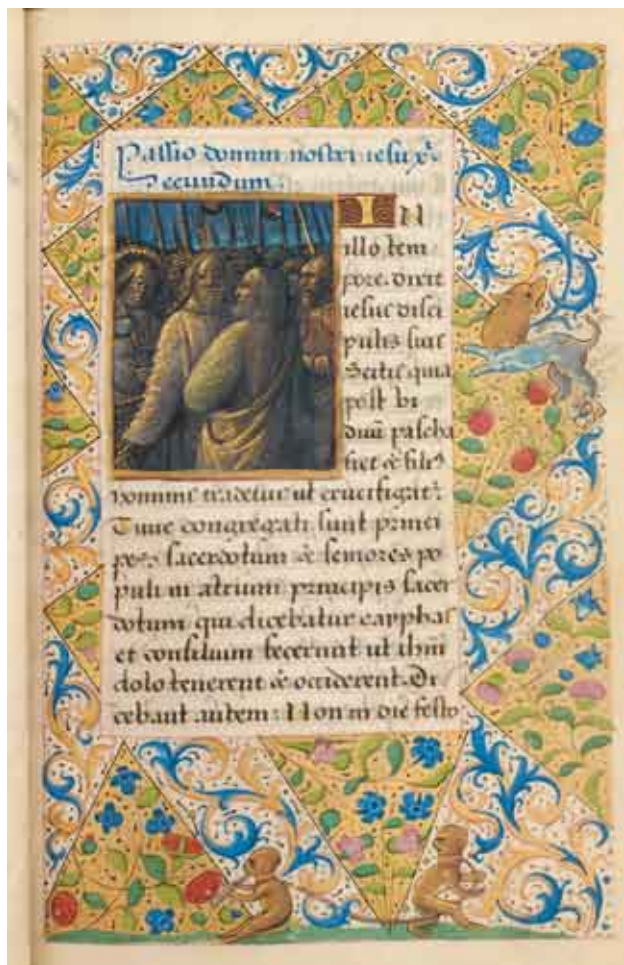 Passio domini nostri iesu xp̄i
Secundum:
IN
illo tem
pore. dixit
iesus disci
pulis suis
Scitis quia
post bi
duū pascha
fiet ⁊ fili⁹
hominis tradetur ut crucifigat᷑:
Tunc congregati sunt princi
pes sacerdotum ⁊ seniores po
puli in atrium principis sacer
dotum qui dicebatur cayphas
et consilium fecerunt ut ihm̄
dolo tenerent ⁊ occiderent. Di
cebant autem: Non in die festo